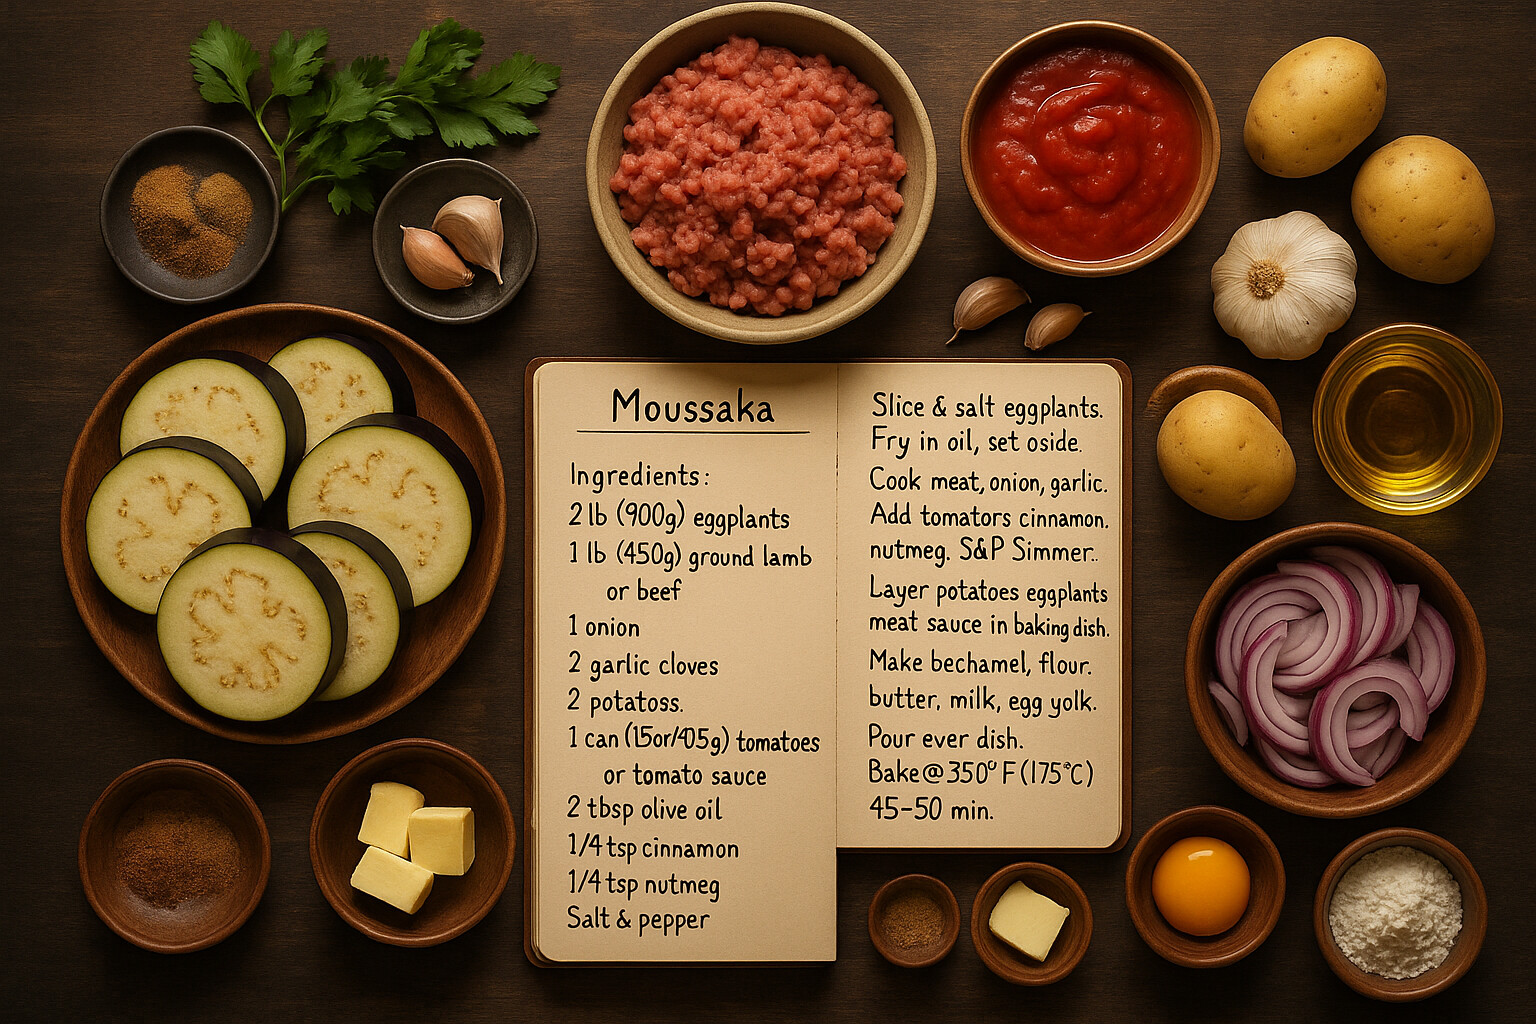 Moussaka
Ingredients:
2 lb (900g) eggplants
1 lb (450g) ground lamb
or beef
1 onion
2 garlic cloves
2 potatoss.
1 can (15or/405g) tomatoes
or tomato sauce
2 tbsp olive oil
1/4 tsp cinnamon
1/4 tsp nutmeg
Salt & pepper
Slice & salt eggplants.
Fry in oil, set oside.
Cook meat, onion, garlic.
Add tomators cinnamon.
nutmeg. S&P Simmer.
Layer potatoes eggplants
meat sauce in baking dish.
Make bechamel, flour.
butter, milk, egg yolk.
Pour ever dish.
Bake @ 350° F (175°C)
45-50 min.